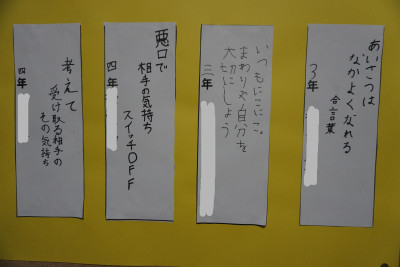 あいさつは
なかよくなれる
合言葉
3年
いつもにこにこ
まわりや自分を
大切に
三年
悪口で
相手の気持ち
スイッチOFF
四年
考えて
受け取る相手の
その気持ち
四年